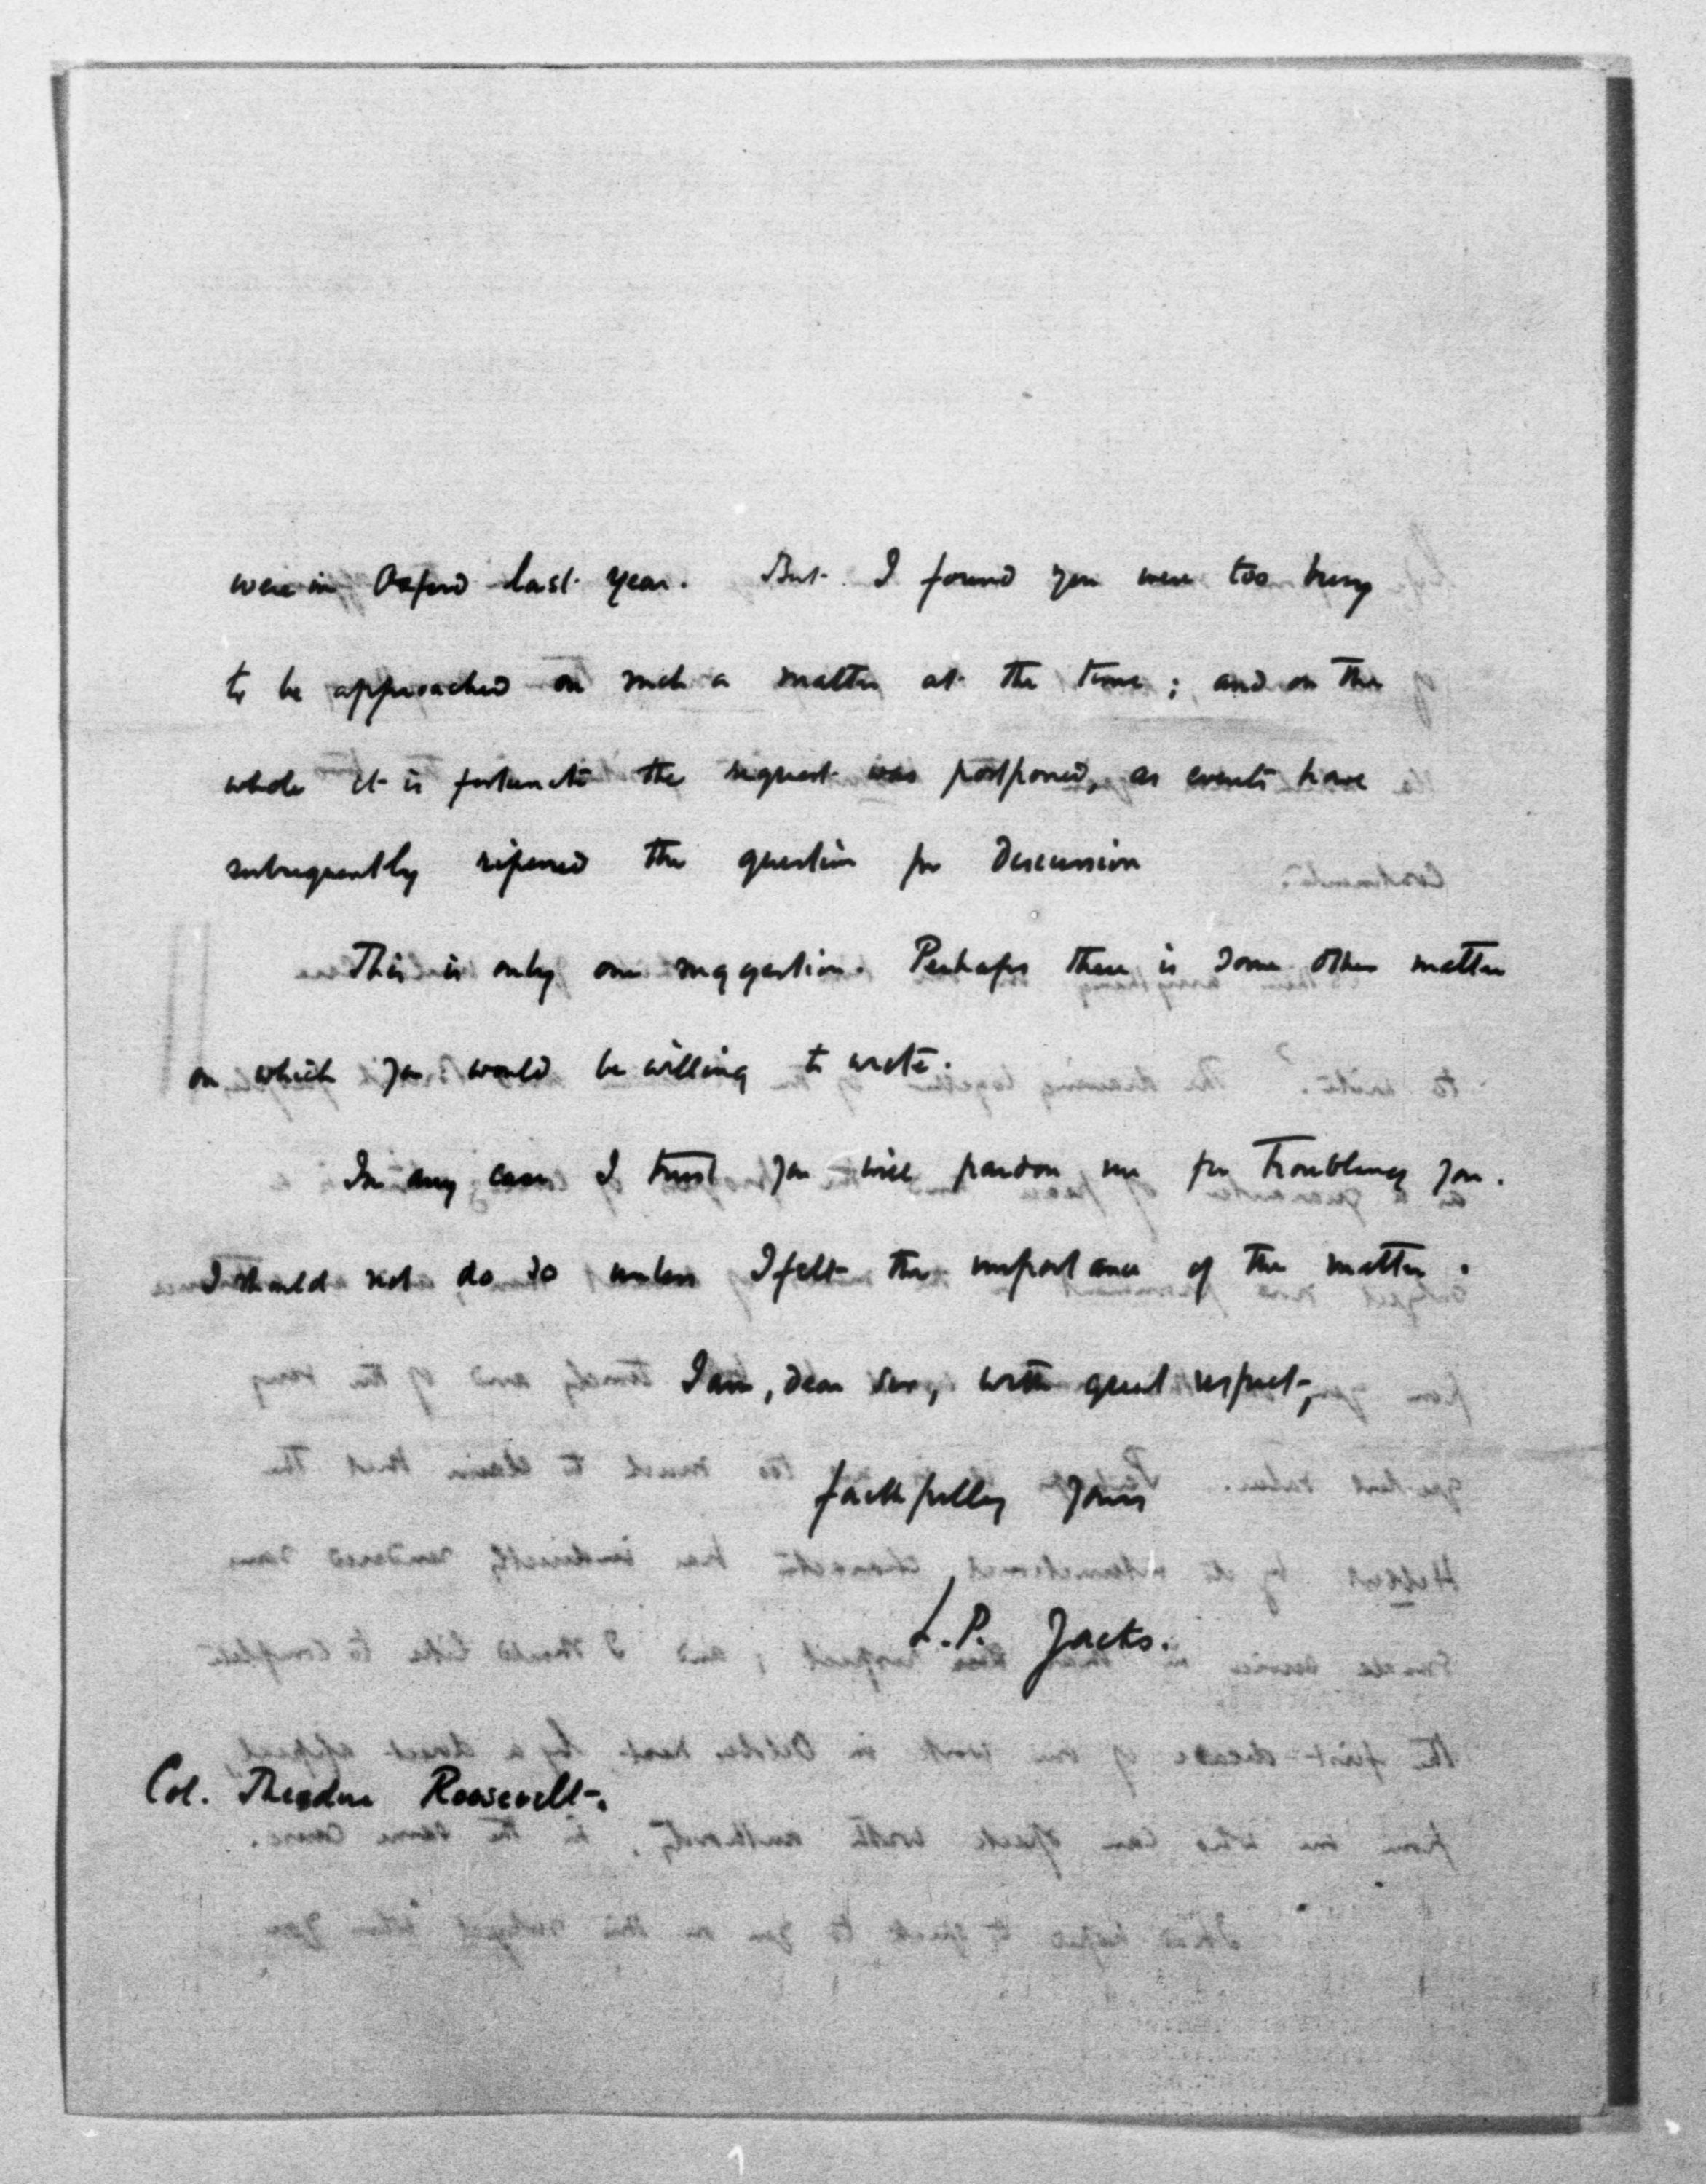 were in Oxford last year. But I found you were too busy
to be approached on such a matter at the time; and on the
whole it is fortunate the request was postponed, as events have
subsequently ripened the question for discussion
This is only one suggestion. Perhaps there is some other matter
on which you would be willing to write.
In any case I trust you will pardon me for troubling you.
I should not do so unless I felt the importance of the matter.
I am, dear Sir, with great respect,
faithfully yours
L. P. Jacks.
Col. Theodore Roosevelt.